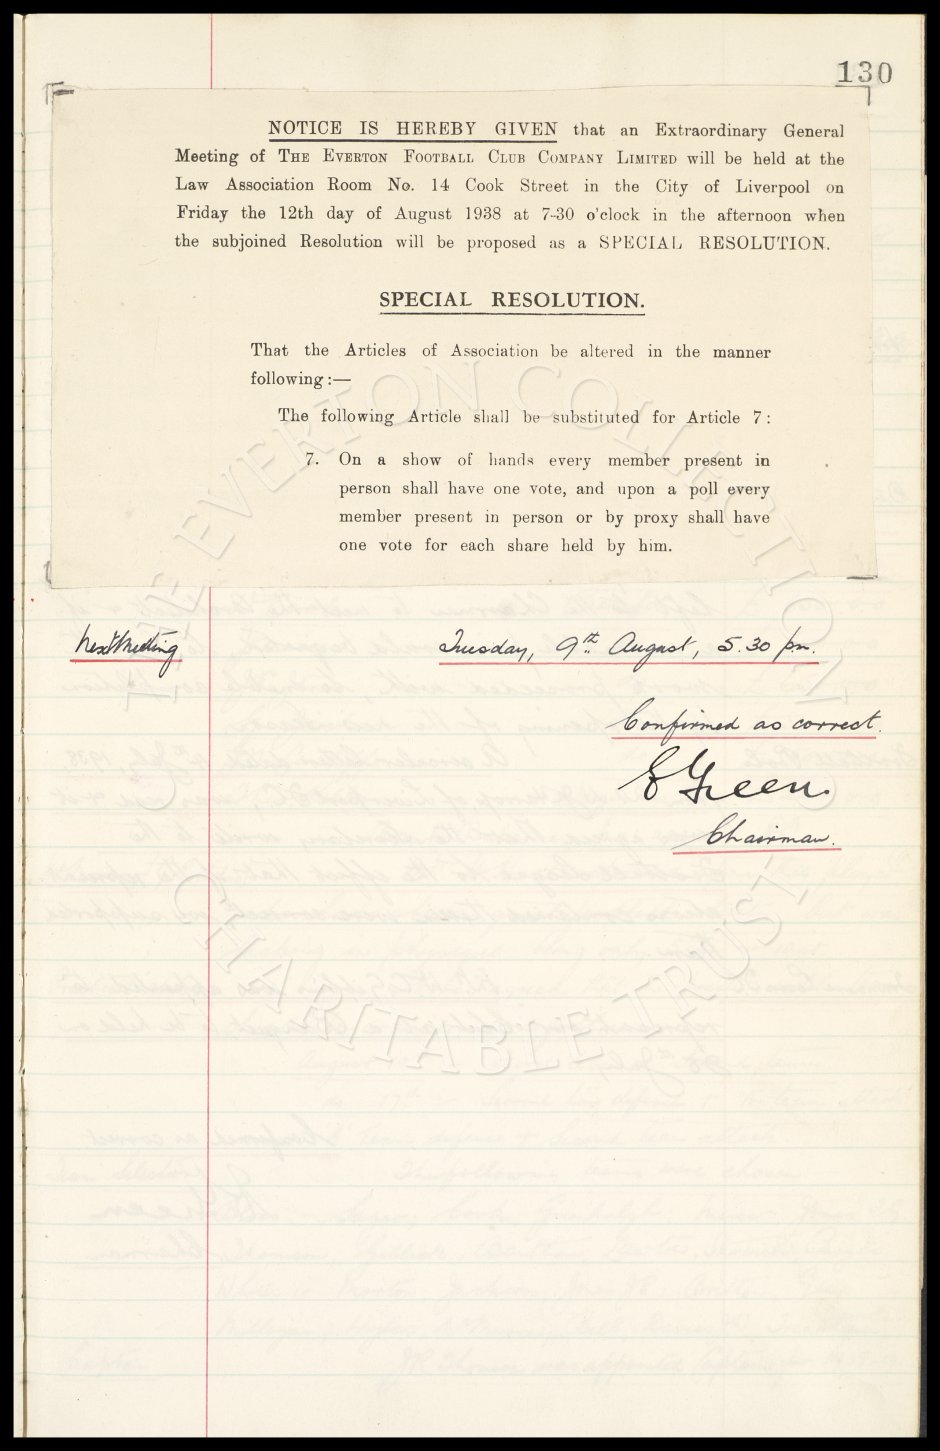 130
NOTICE IS HEREBY GIVEN that an Extraordinary General
Meeting of THE EVERTON FOOTBALL CLUB COMPANY LIMITED will be held at the
Law Association Room No. 14 Cook Street in the City of Liverpool on
Friday the 12th day of August 1938 at 7-30 o'clock in the afternoon when
the subjoined Resolution will be proposed as a SPECIAL RESOLUTION.
SPECIAL RESOLUTION.
That the Articles of Association be altered in the manner
following:—
The following Article shall be substituted for Article 7:
7. On a show of hands every member present in
person shall have one vote, and upon a poll every
member present in person or by proxy shall have
one vote for each share held by him.
Next Meeting Tuesday, 9th August, 5.30 pm.
Confirmed as correct.
E Green.
Chairman.
THE EVERTON COLLECTION
CHARITABLE TRUST